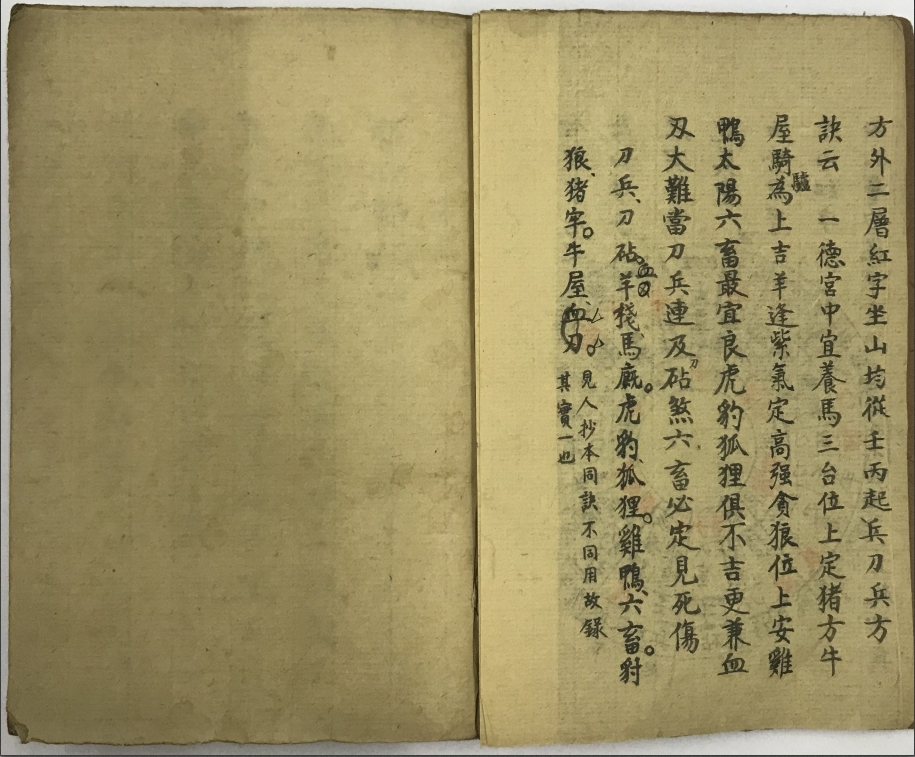 方外二層紅字坐山均從壬丙起兵刀兵方
訣云　一德宮中宜養馬三台位上定猪方牛
屋騎驢為上吉羊逢紫氣定高强貪狼位上安雞
鴨太陽六畜最宜良虎豹狐狸俱不吉更兼血
刃大難當刀兵連及刀砧煞六畜必定見死傷
刀兵、刀砧。血刃羊棧、馬廐。虎豹、狐狸。雞鴨、六畜。豺
狼、猪牢。牛屋、血刃。
見人抄本同訣不同用故錄
其實一也